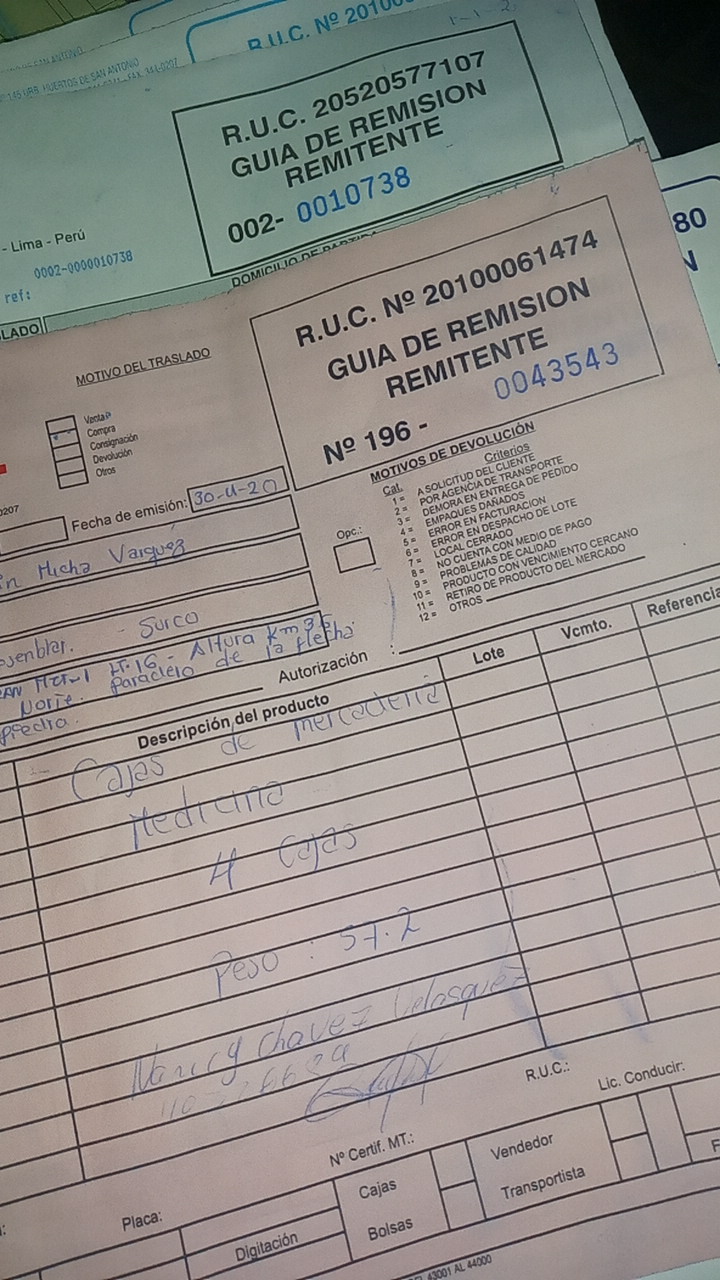 R.U.C. Nº 20100
145 URB. HUERTOS DE SAN ANTONIO
R.U.C. 20520577107
GUIA DE REMISION
REMITENTE
002- 0010738
- Lima - Perú
0002-0000010738
ref:
DOMICILIO DE PARTIDA
LADO
80
N
R.U.C. Nº 20100061474
GUIA DE REMISION
REMITENTE
Nº 196 - 0043543
MOTIVO DEL TRASLADO
Venta
Compra
Consignación
Devolución
Otros
0207
Fecha de emisión: 30-4-20
MOTIVOS DE DEVOLUCIÓN
Cat. Criterios
1 = A SOLICITUD DEL CLIENTE
2 = POR AGENCIA DE TRANSPORTE
3 = DEMORA EN ENTREGA DE PEDIDO
4 = EMPAQUES DAÑADOS
5 = ERROR EN FACTURACION
6 = ERROR EN DESPACHO DE LOTE
7 = LOCAL CERRADO
8 = NO CUENTA CON MEDIO DE PAGO
9 = PROBLEMAS DE CALIDAD
10 = PRODUCTO CON VENCIMIENTO CERCANO
11 = RETIRO DE PRODUCTO DEL MERCADO
12 = OTROS
Opc.:
Micha Vasquez
- Surco
Altura Km 36
Norte. Paradero de la flecha
Piedra.
Autorización :
Descripción del producto
Lote
Vcmto.
Referencia
Cajas de mercaderia
Medicina
4 Cajas
Peso : 57.2
Nancy Chavez Velasquez
R.U.C.:
Lic. Conducir:
Nº Certif. MT.:
Placa:
Cajas
Vendedor
Digitación
Bolsas
Transportista
43001 AL 44000